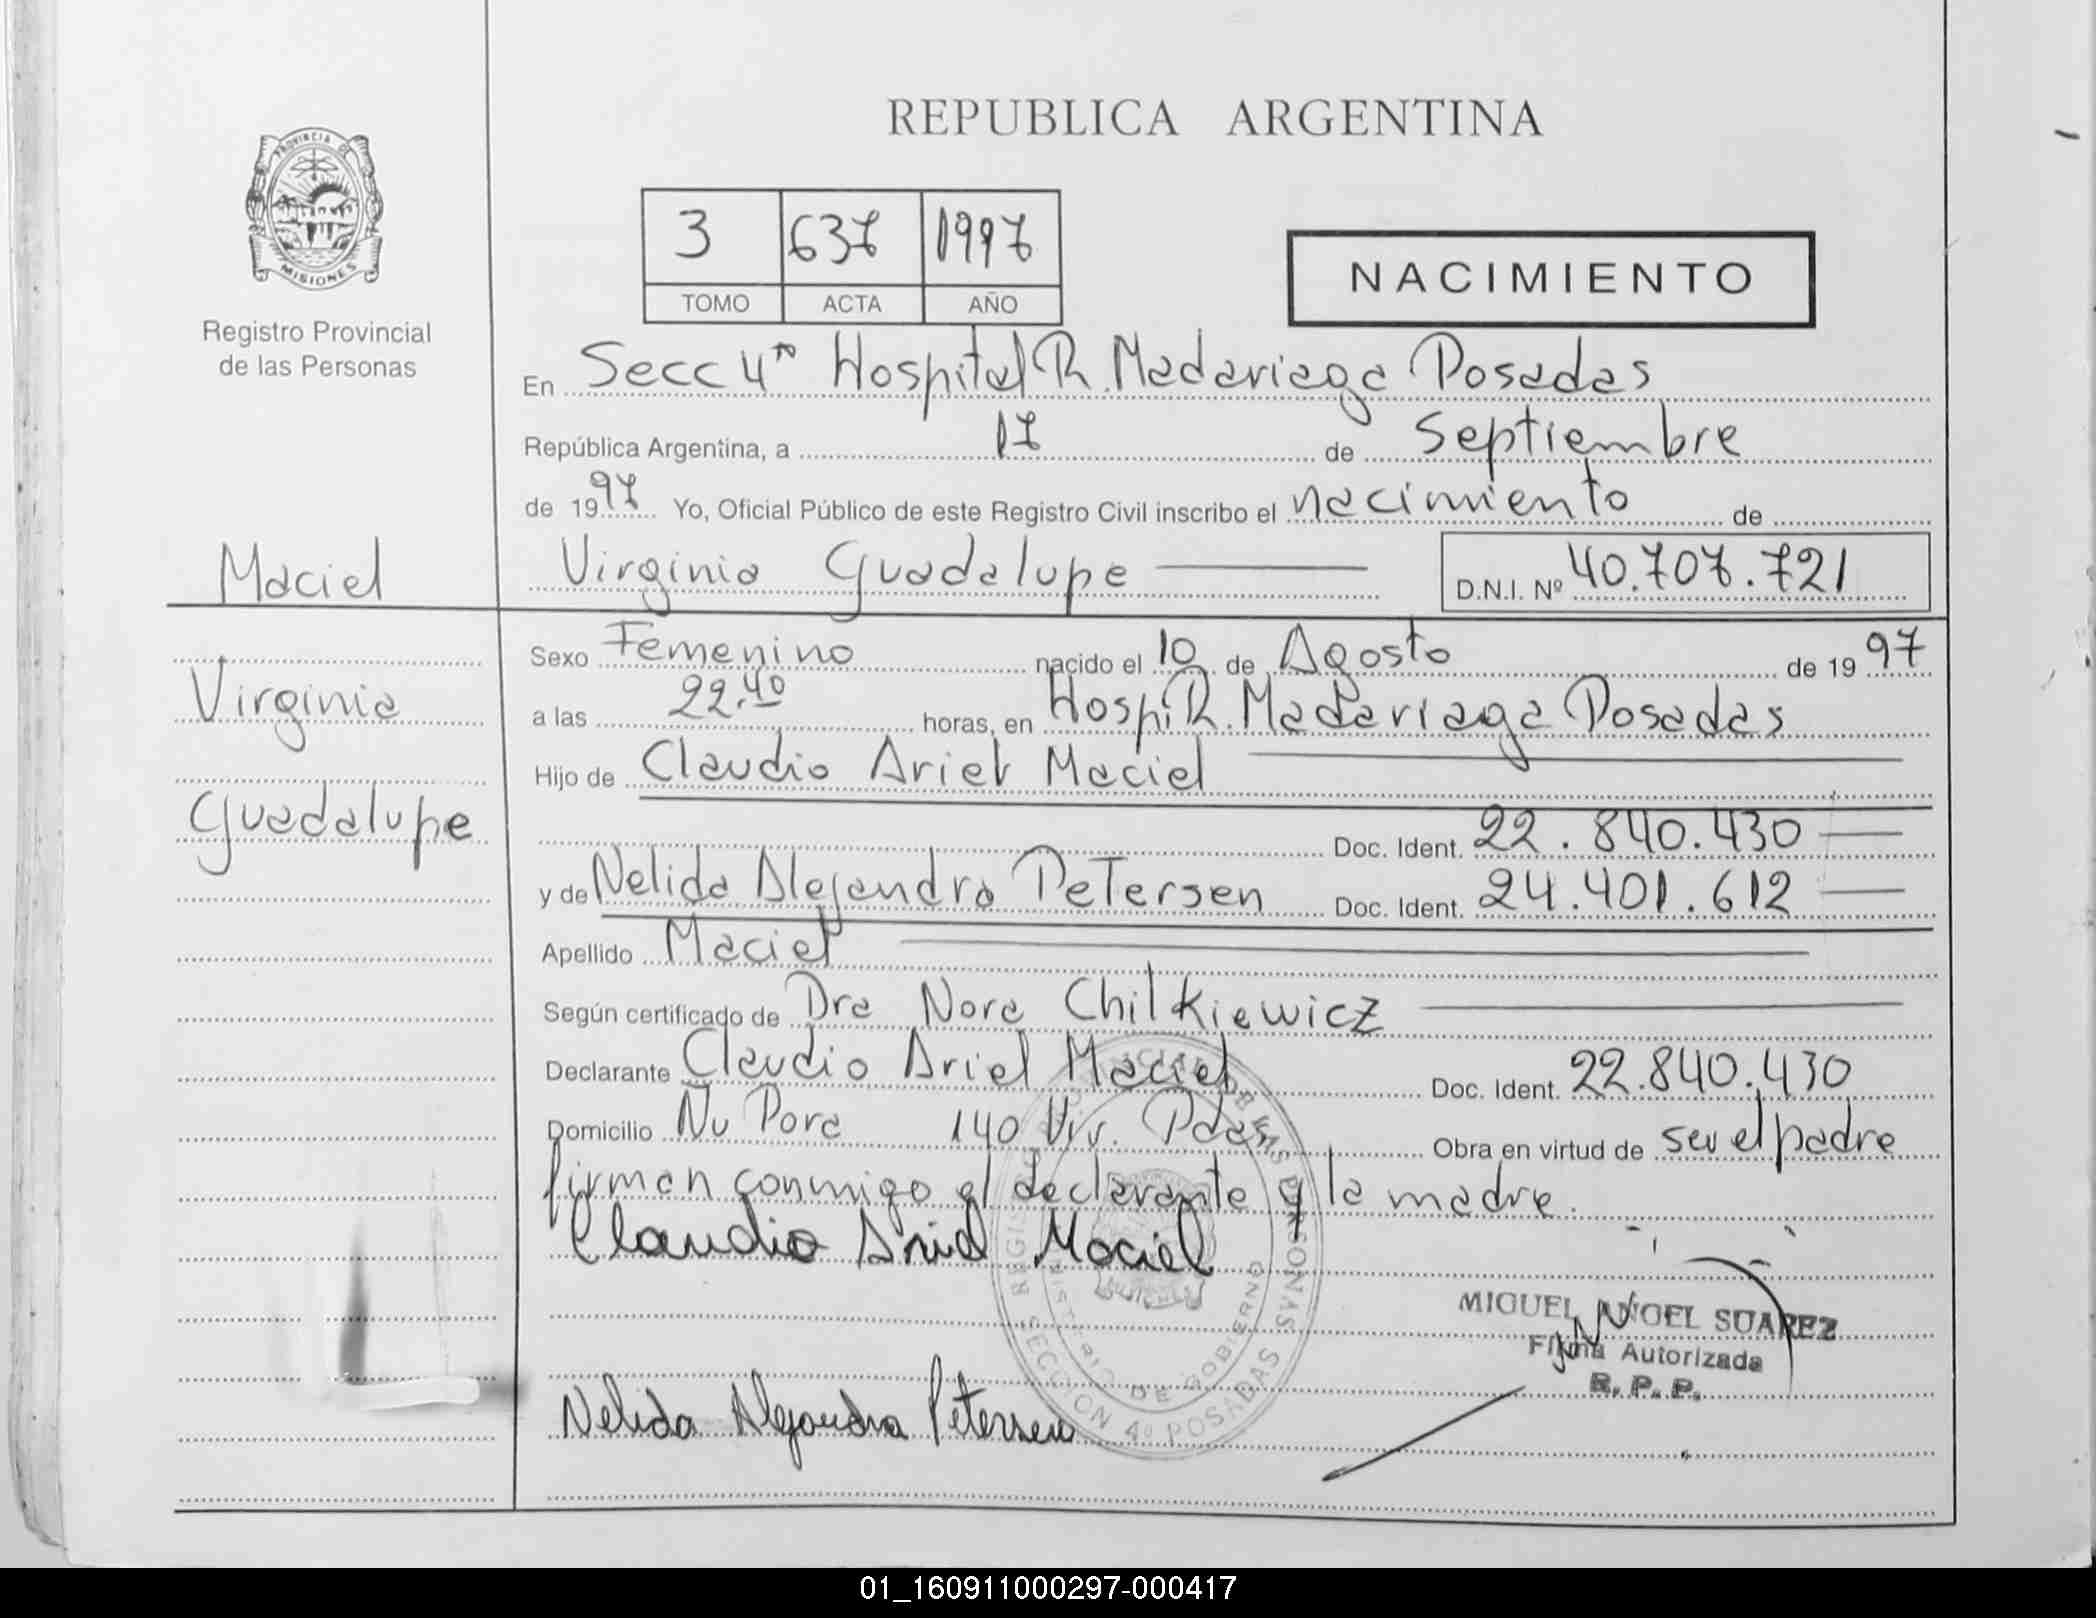 REPUBLICA ARGENTINA
PROVINCIA DE
MISIONES
Registro Provincial
de las Personas
3 637 1997
TOMO ACTA AÑO
NACIMIENTO
En Secc 4ª Hospital R. Madariaga Posadas
República Argentina, a 17 de Septiembre
de 1997 Yo, Oficial Público de este Registro Civil inscribo el nacimiento de
Maciel
Virginia Guadalupe
D.N.I. Nº 40.707.721
Virginia
Guadalupe
Sexo Femenino nacido el 10 de Agosto de 1997
a las 22.40 horas, en Hosp. R. Madariaga Posadas
Hijo de Claudio Ariel Maciel
Doc. Ident. 22.840.430
y de Nelida Alejandra Petersen Doc. Ident. 24.401.612
Apellido Maciel
Según certificado de Dra Nora Chilkiewicz
Declarante Claudio Ariel Maciel Doc. Ident. 22.840.430
Domicilio Ñu Pora 140 Viv. Pdas Obra en virtud de ser el padre
firman conmigo el declarante y la madre.
Claudio Ariel Maciel
MINISTERIO DE GOBIERNO
SECCION 4º POSADAS
MIGUEL ANGEL SUAREZ
Firma Autorizada
R. P. P.
Nelida Alejandra Petersen
01_160911000297-000417